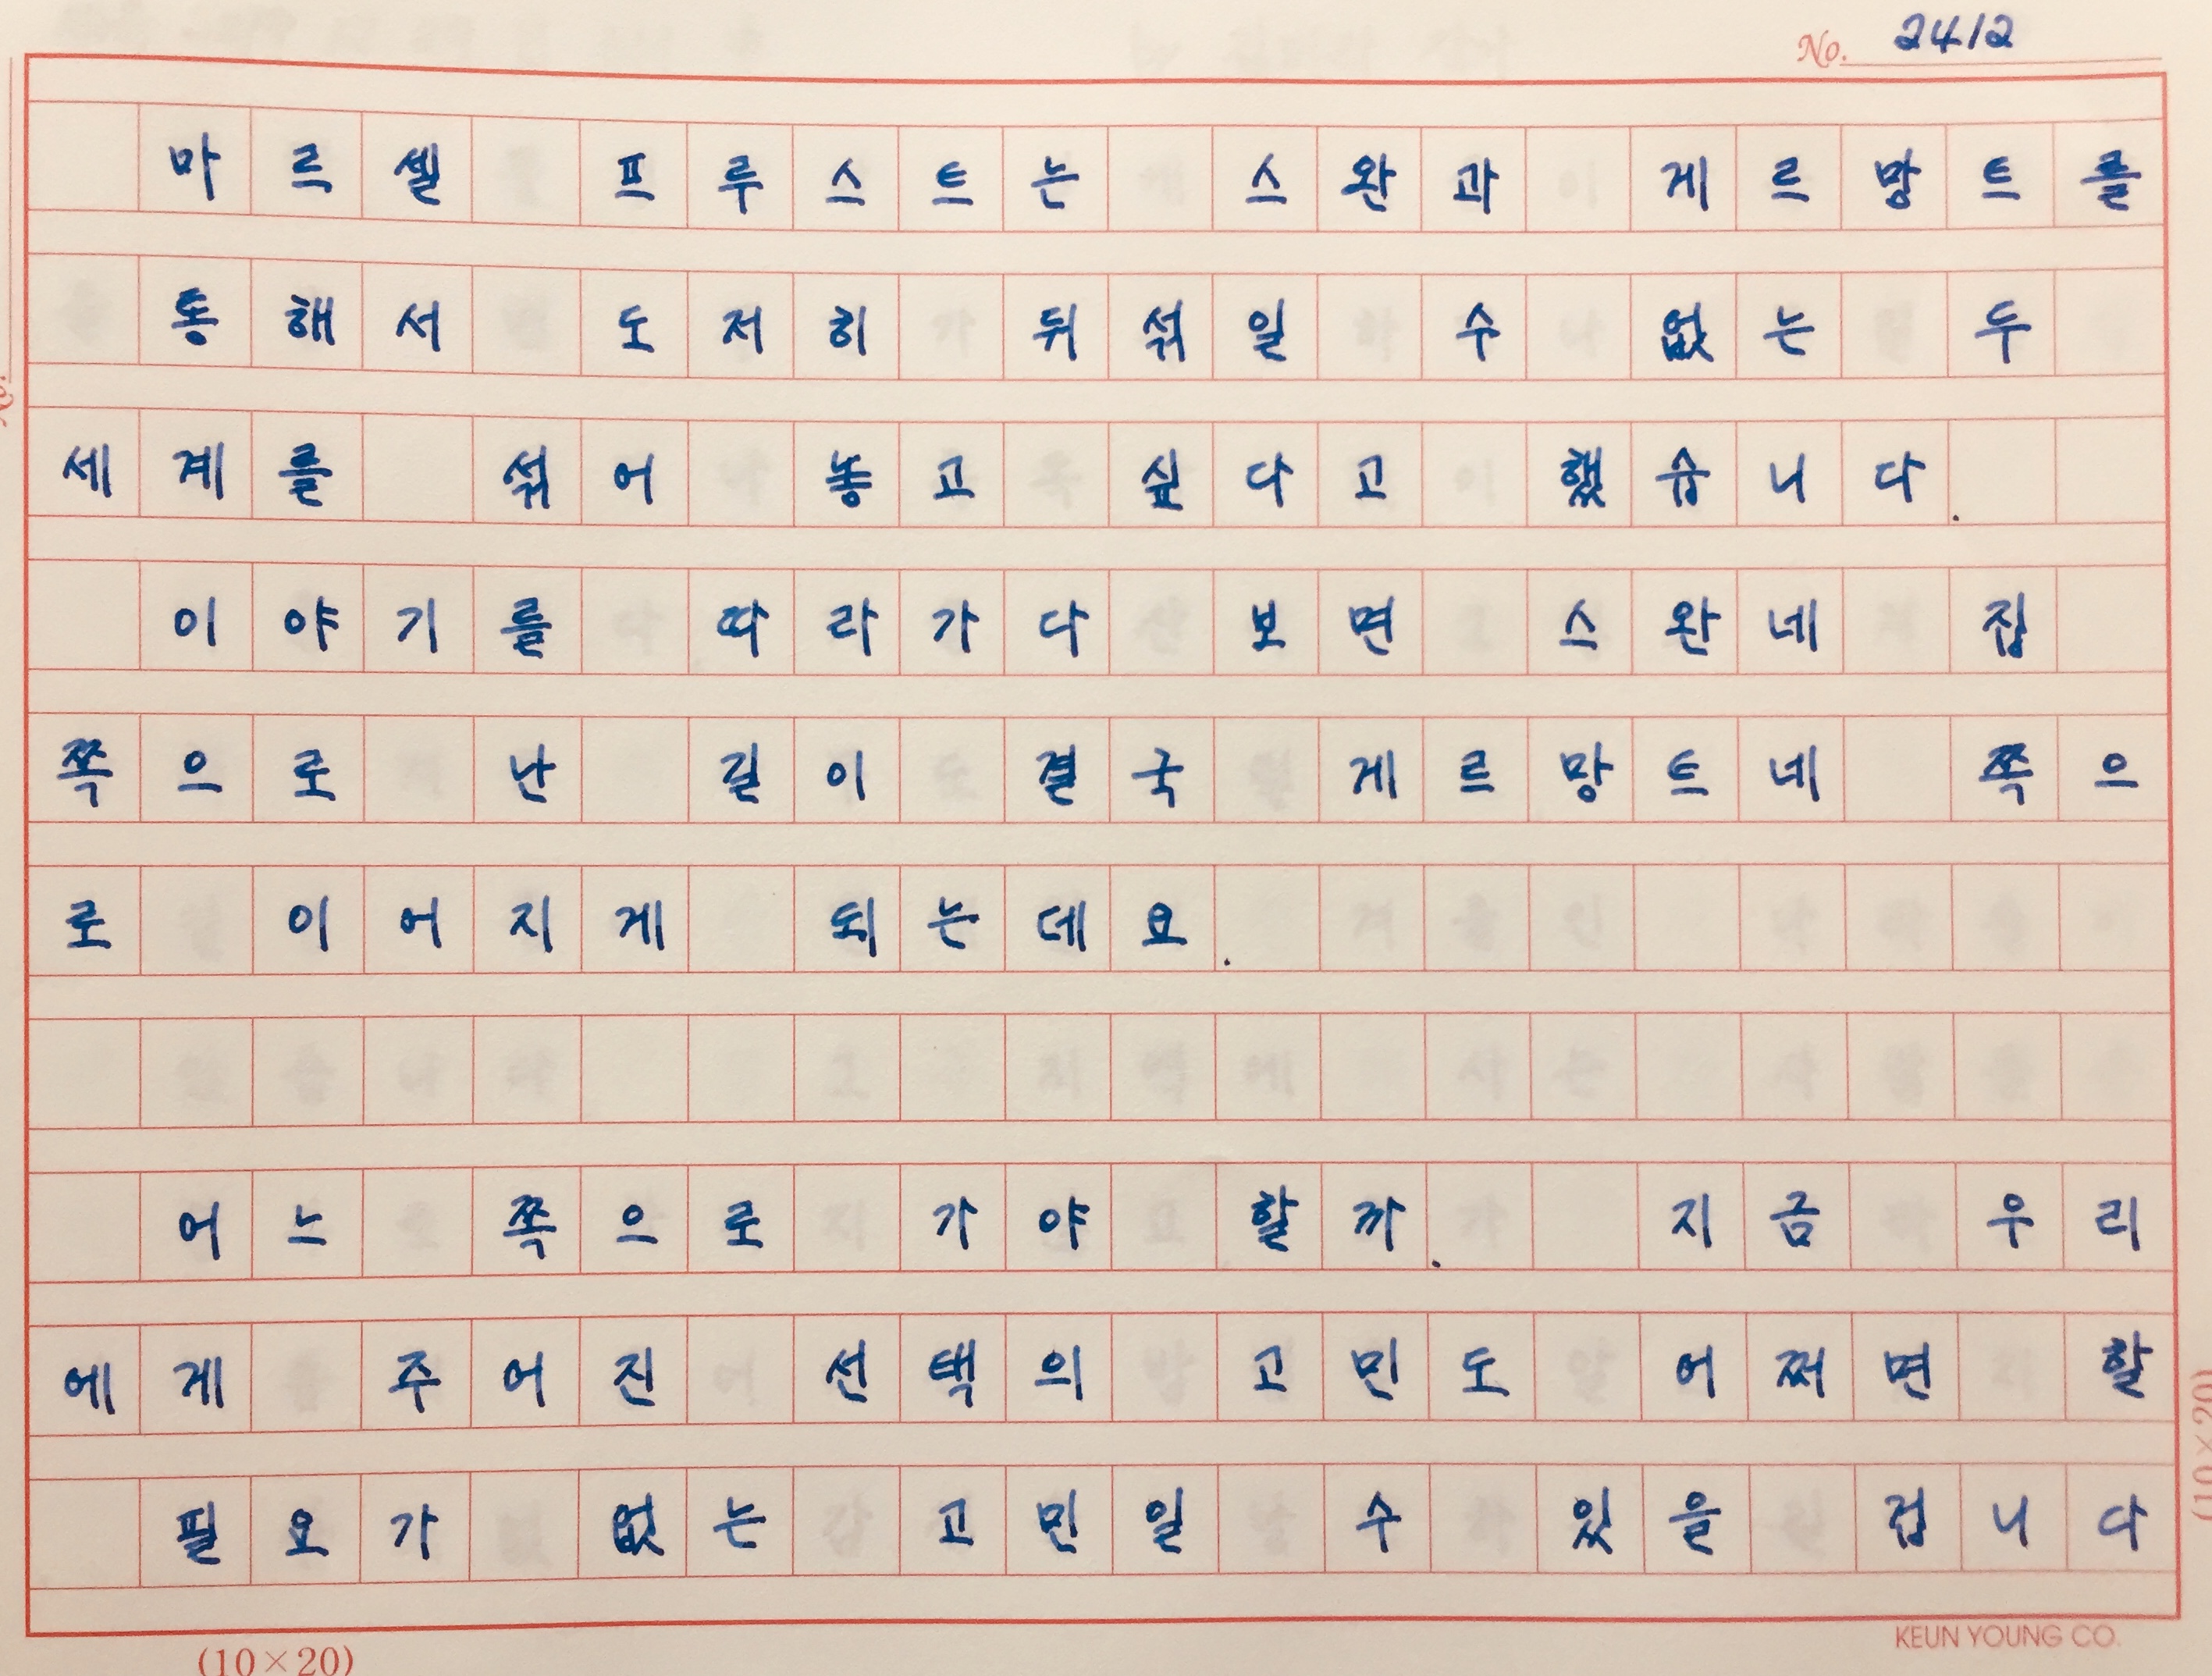 No. 2412
마르셀 프루스트는 스완과 게르망트를
통해서 도저히 뒤섞일 수 없는 두
세계를 섞어 놓고 싶다고 했습니다.
이야기를 따라가다 보면 스완네 집
쪽으로 난 길이 결국 게르망트네 쪽으
로 이어지게 되는데요.
어느 쪽으로 가야 할까. 지금 우리
에게 주어진 선택의 고민도 어쩌면 할
필요가 없는 고민일 수 있을 겁니다
KEUN YOUNG CO.
(10×20)
(10×20)
No.